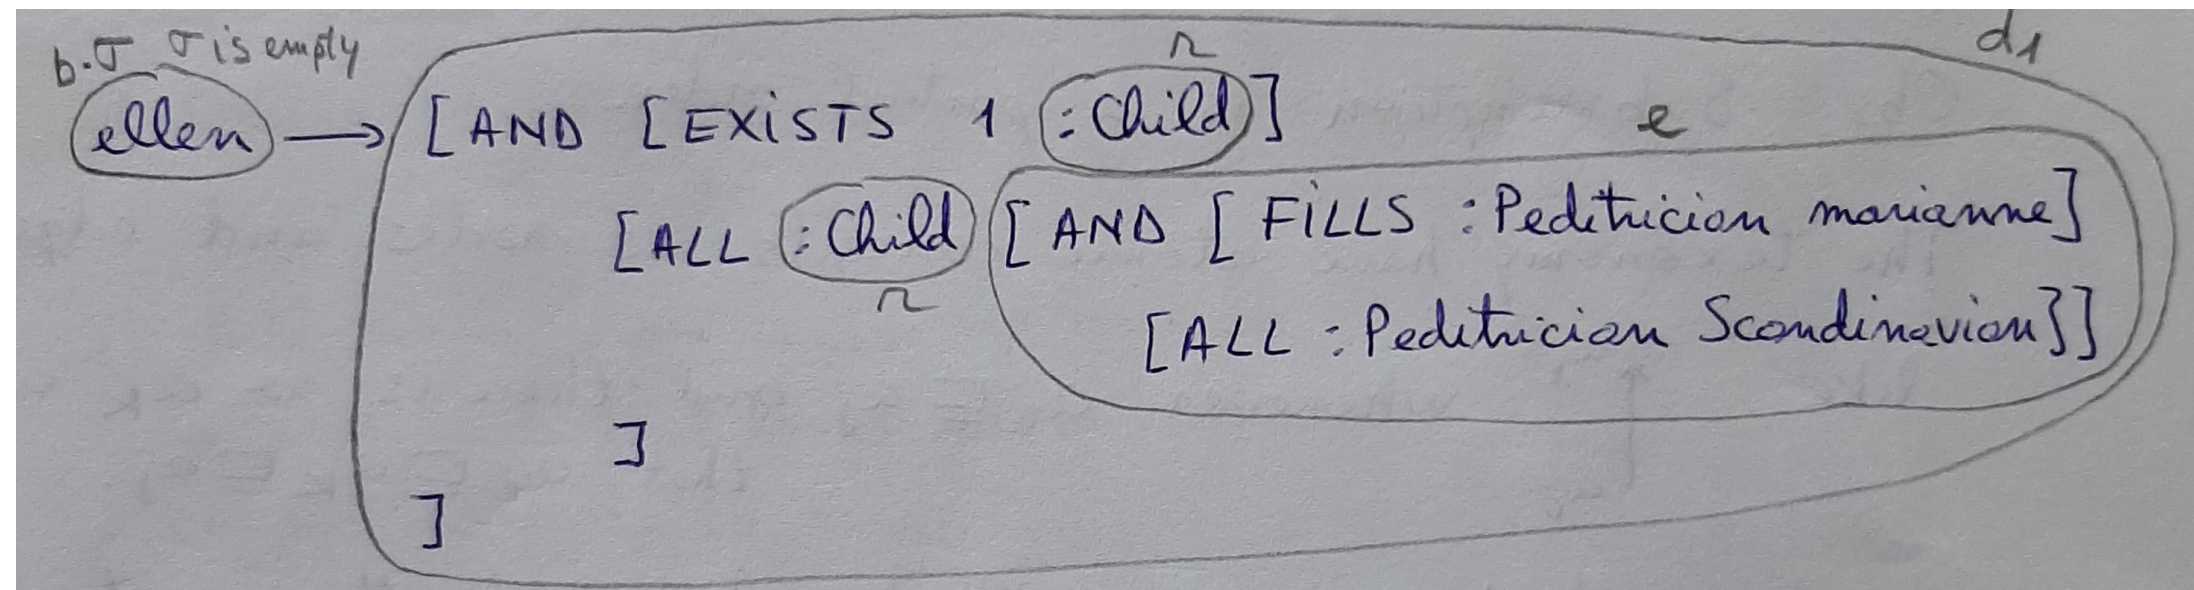 b.σ σ is empty r d1
ellen → [AND [EXISTS 1 :Child] e
[ALL :Child [AND [FILLS :Peditrician marianne]
r
[ALL :Peditrician Scandinavian]]
]
]